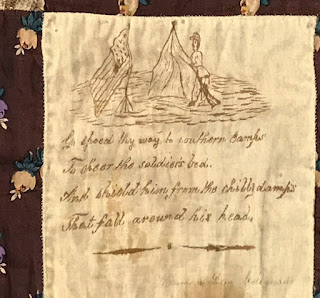 speed thy way to southern camps
To cheer the soldier's bed.
And shield him from the chilly damps
That fall around his head.